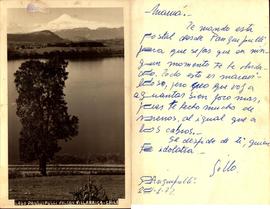 LAGO PANGUIPULLI VOLCAN VILLARRICA-CHILE
Mamá:
Te mando esta
postal desde Panguipulli
para que sepas que en nin-
gún momento te he olvida-
do. Todo esto es maravi-
lloso, pero que voy a
aguantar son poco mas,
pues te hecho mucho de
menos, al igual que a
los cabros.
Se despide de ti, quien
te idolatra
Panguipulli